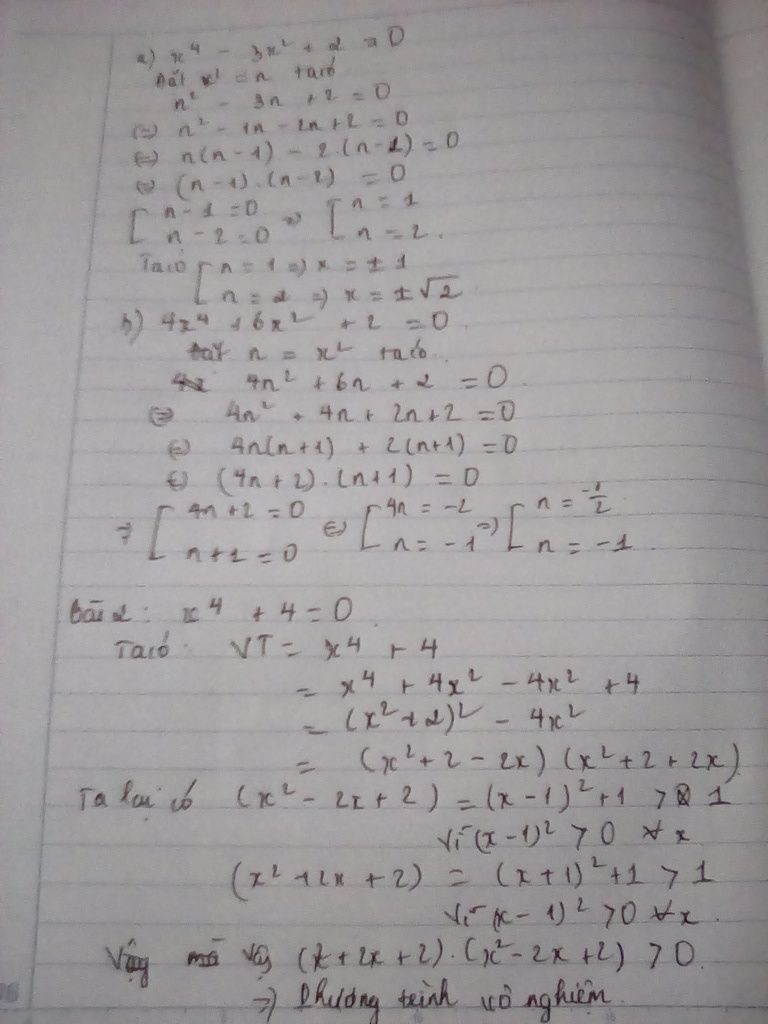 a) x⁴ - 3x² + 2 = 0
Đặt x² = n ta có
n² - 3n + 2 = 0
(=) n² - 1n - 2n + 2 = 0
(=) n(n-1) - 2.(n-1) = 0
(=) (n-1).(n-2) = 0
[ n-1 = 0 => [ n = 1
n - 2 = 0 n = 2.
Ta có [ n = 1 => x = ±1
n = 2 => x = ±√2
b) 4x⁴ + 6x² + 2 = 0.
Đặt n = x² ta có.
4n² + 6n + 2 = 0.
(=) 4n² + 4n + 2n + 2 = 0
(=) 4n(n+1) + 2(n+1) = 0
(=) (4n+2).(n+1) = 0
=> [ 4n+2 = 0 (=) [ 4n = -2 => [ n = -1/2
n+1 = 0 n = -1 n = -1.
Bài 2: x⁴ + 4 = 0.
Ta có: VT = x⁴ + 4
= x⁴ + 4x² - 4x² + 4
= (x²+2)² - 4x²
= (x²+2-2x)(x²+2+2x)
Ta lại có (x² - 2x + 2) = (x-1)² + 1 > 1
Vì (x-1)² > 0 ∀x
(x² + 2x + 2) = (x+1)² + 1 > 1
Vì (x-1)² > 0 ∀x.
Vậy (x + 2x + 2).(x² - 2x + 2) > 0.
=> Phương trình vô nghiệm.